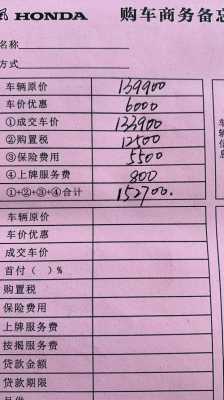 HONDA 购车商务备忘
名称
方式
车辆原价 139900
车价优惠 6000
①成交车价 133900
②购置税 12500
③保险费用 5500
④上牌服务费 800
①+②+③+④合计 152700.
车辆原价
车价优惠
成交车价
首付（ ）%
购置税
保险费用
上牌服务费
按揭服务费
贷款金额
贷款期限